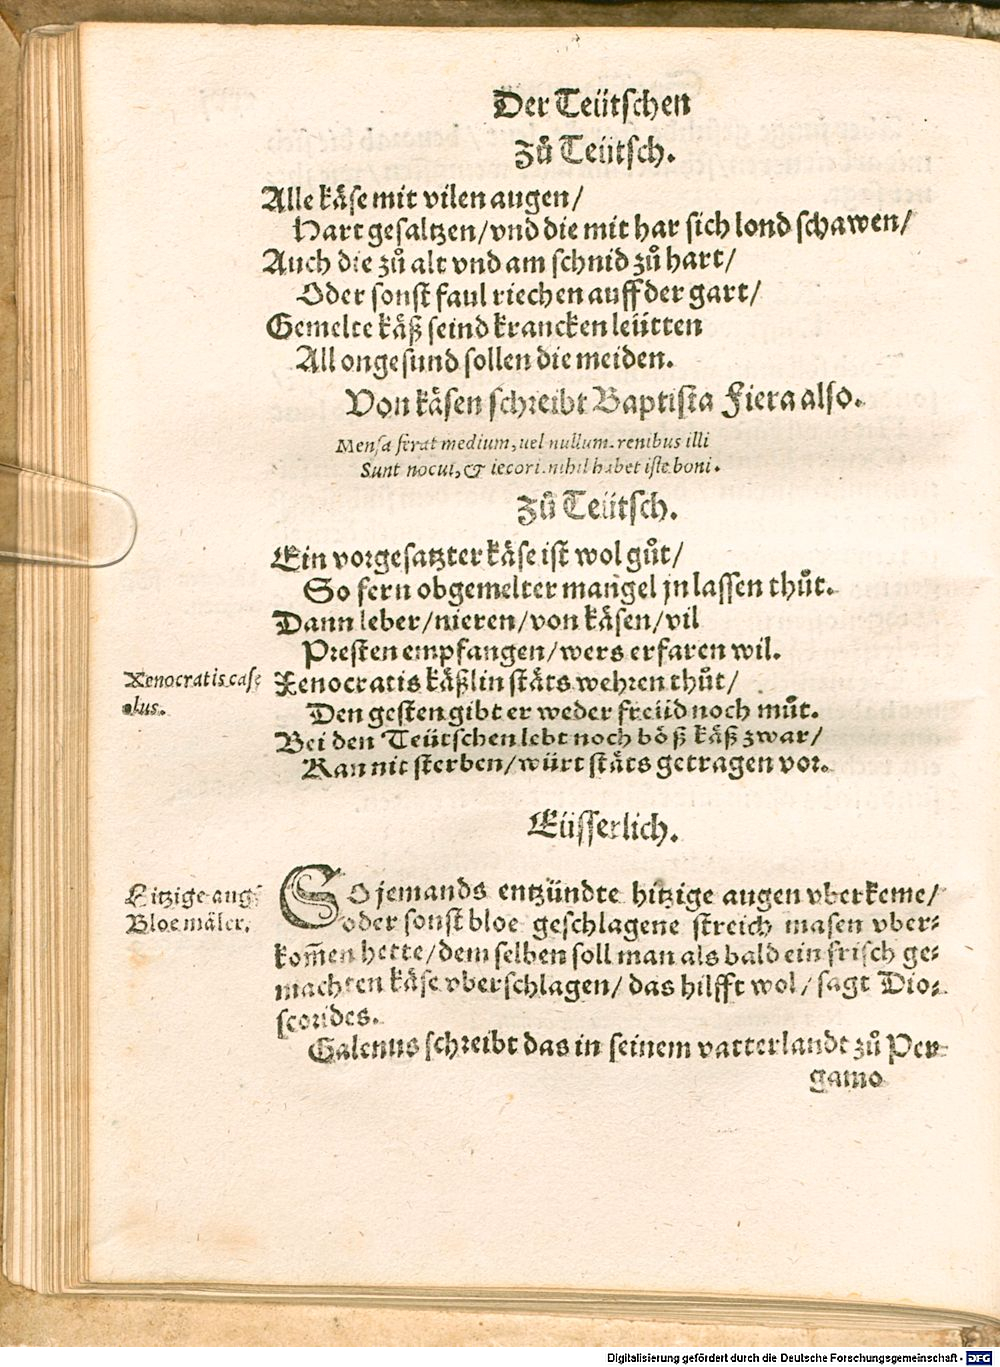 Der Teütschen
Zů Teütsch.
Alle käse mit vilen augen/
Hart gesaltzen/vnd die mit har sich lond schawen/
Auch die zů alt vnd am schnid zů hart/
Oder sonst faul riechen auff der gart/
Gemelte käß seind krancken leütten
All ongesund sollen die meiden.
Von käsen schreibt Baptista Fiera also.
Mensa ferat medium, uel nullum. renibus illi
Sunt nocui, & iecori. nihil habet iste boni.
Zů Teütsch.
Ein vorgesatzter käse ist wol gůt/
So fern obgemelter mangel jn lassen thůt.
Dann leber/nieren/von käsen/vil
Presten empfangen/wers erfaren wil.
Xenocratis case
olus.
Xenocratis käßlin stäts wehren thůt/
Den gesten gibt er weder freüd noch můt.
Bei den Teütschen lebt noch böß käß zwar/
Kan nit sterben/würt stäts getragen vor.
Eüsserlich.
Hitzige aug
Bloe mäler.
SO jemands entzündte hitzige augen vberkeme/
oder sonst bloe geschlagene streich masen vber⸗
kom̃en hette/dem selben soll man als bald ein frisch ge⸗
machten käse vberschlagen/ das hilfft wol/ sagt Dio⸗
scorides.
Galenus schreibt das in seinem vatterlandt zů Per⸗
gamo
Digitalisierung gefördert durch die Deutsche Forschungsgemeinschaft - DFG